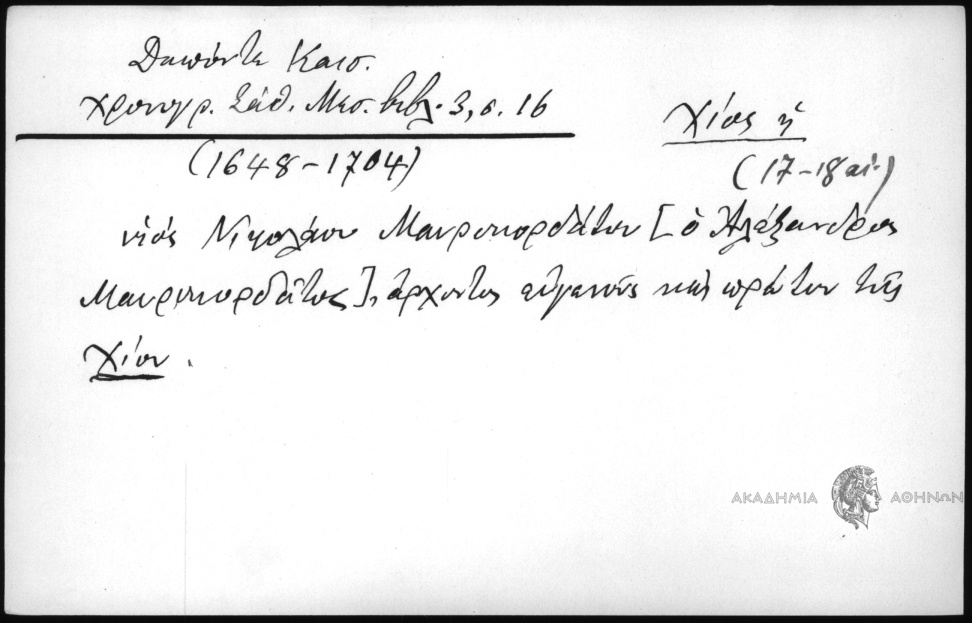 Δαπόντε Καισ.
Χρονογρ. Σάθ. Μεσ. βιβλ. 3, σ. 16
Χίος ἡ
(1648-1704)
(17-18 αἰ.)
υἱός Νικολάου Μαυροκορδάτου [ὁ Ἀλέξανδρος
Μαυροκορδᾶτος], ἄρχοντος εὐγενοῦς καὶ πρώτου τῆς
Χίου.
ΑΚΑΔΗΜΙΑ ΑΘΗΝΩΝ